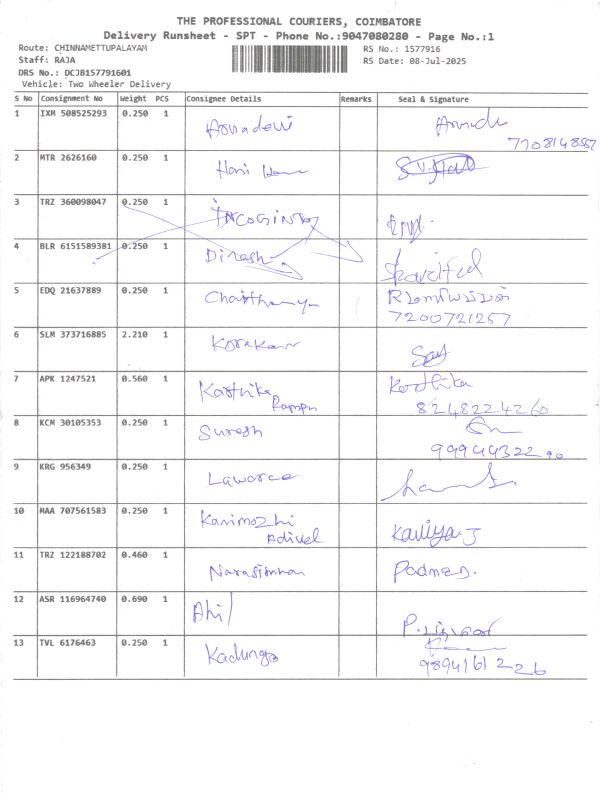 THE PROFESSIONAL COURIERS, COIMBATORE
Delivery Runsheet - SPT - Phone No.:9047080280 - Page No.:1
Route: CHINNAMETTUPALAYAM
RS No.: 1577916
Staff: RAJA
RS Date: 08-Jul-2025
DRS No.: DCJB157791601
Vehicle: Two Wheeler Delivery
S No Consignment No Weight PCS Consignee Details Remarks Seal & Signature
1 IXM 508525293 0.250 1
7708148557
2 MTR 2626160 0.250 1 Hari
3 TRZ 360098047 0.250 1
4 BLR 6151589381 0.250 1 Dinesh
5 EDQ 21637889 0.250 1
7200721257
6 SLM 373716885 2.210 1
7 APK 1247521 0.560 1 Karthika Karthika
8248224260
8 KCM 30105353 0.250 1 Suresh
9994432290
9 KRG 956349 0.250 1 Laworce
10 MAA 707561583 0.250 1 Kanimozhi
Adivel Kaviya.J
11 TRZ 122188702 0.460 1 Narasimman
12 ASR 116964740 0.690 1 Ahil
13 TVL 6176463 0.250 1
9894161226